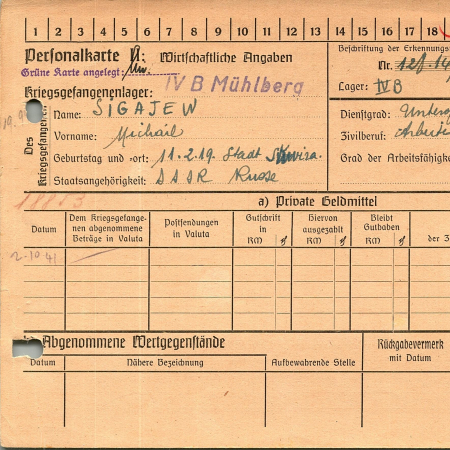 1 2 3 4 5 6 7 8 9 10 11 12 13 14 15 16 17 18
Personalkarte II: Wirtschaftliche Angaben
Grüne Karte angelegt:
Kriegsgefangenenlager: IV B Mühlberg
Beschriftung der Erkennungs
Nr.
Lager: IV B
Des Kriegsgefangenen
Name: SIGAJEW
Vorname: Michail
Geburtstag und -ort: 11.2.19. Stadt
Staatsangehörigkeit: Russe
Dienstgrad: Untero
Zivilberuf: Arbeite
Grad der Arbeitsfähigke
a) Private Geldmittel
Datum
Dem Kriegsgefange-
nen abgenommene
Beträge in Valuta
Postsendungen
in Valuta
Gutschrift
in
RM ₰
Hiervon
ausgezahlt
RM ₰
Bleibt
Guthaben
RM ₰
der Z
2.10.41
Abgenommene Wertgegenstände
Rückgabevermerk
mit Datum
Datum
Nähere Bezeichnung
Aufbewahrende Stelle